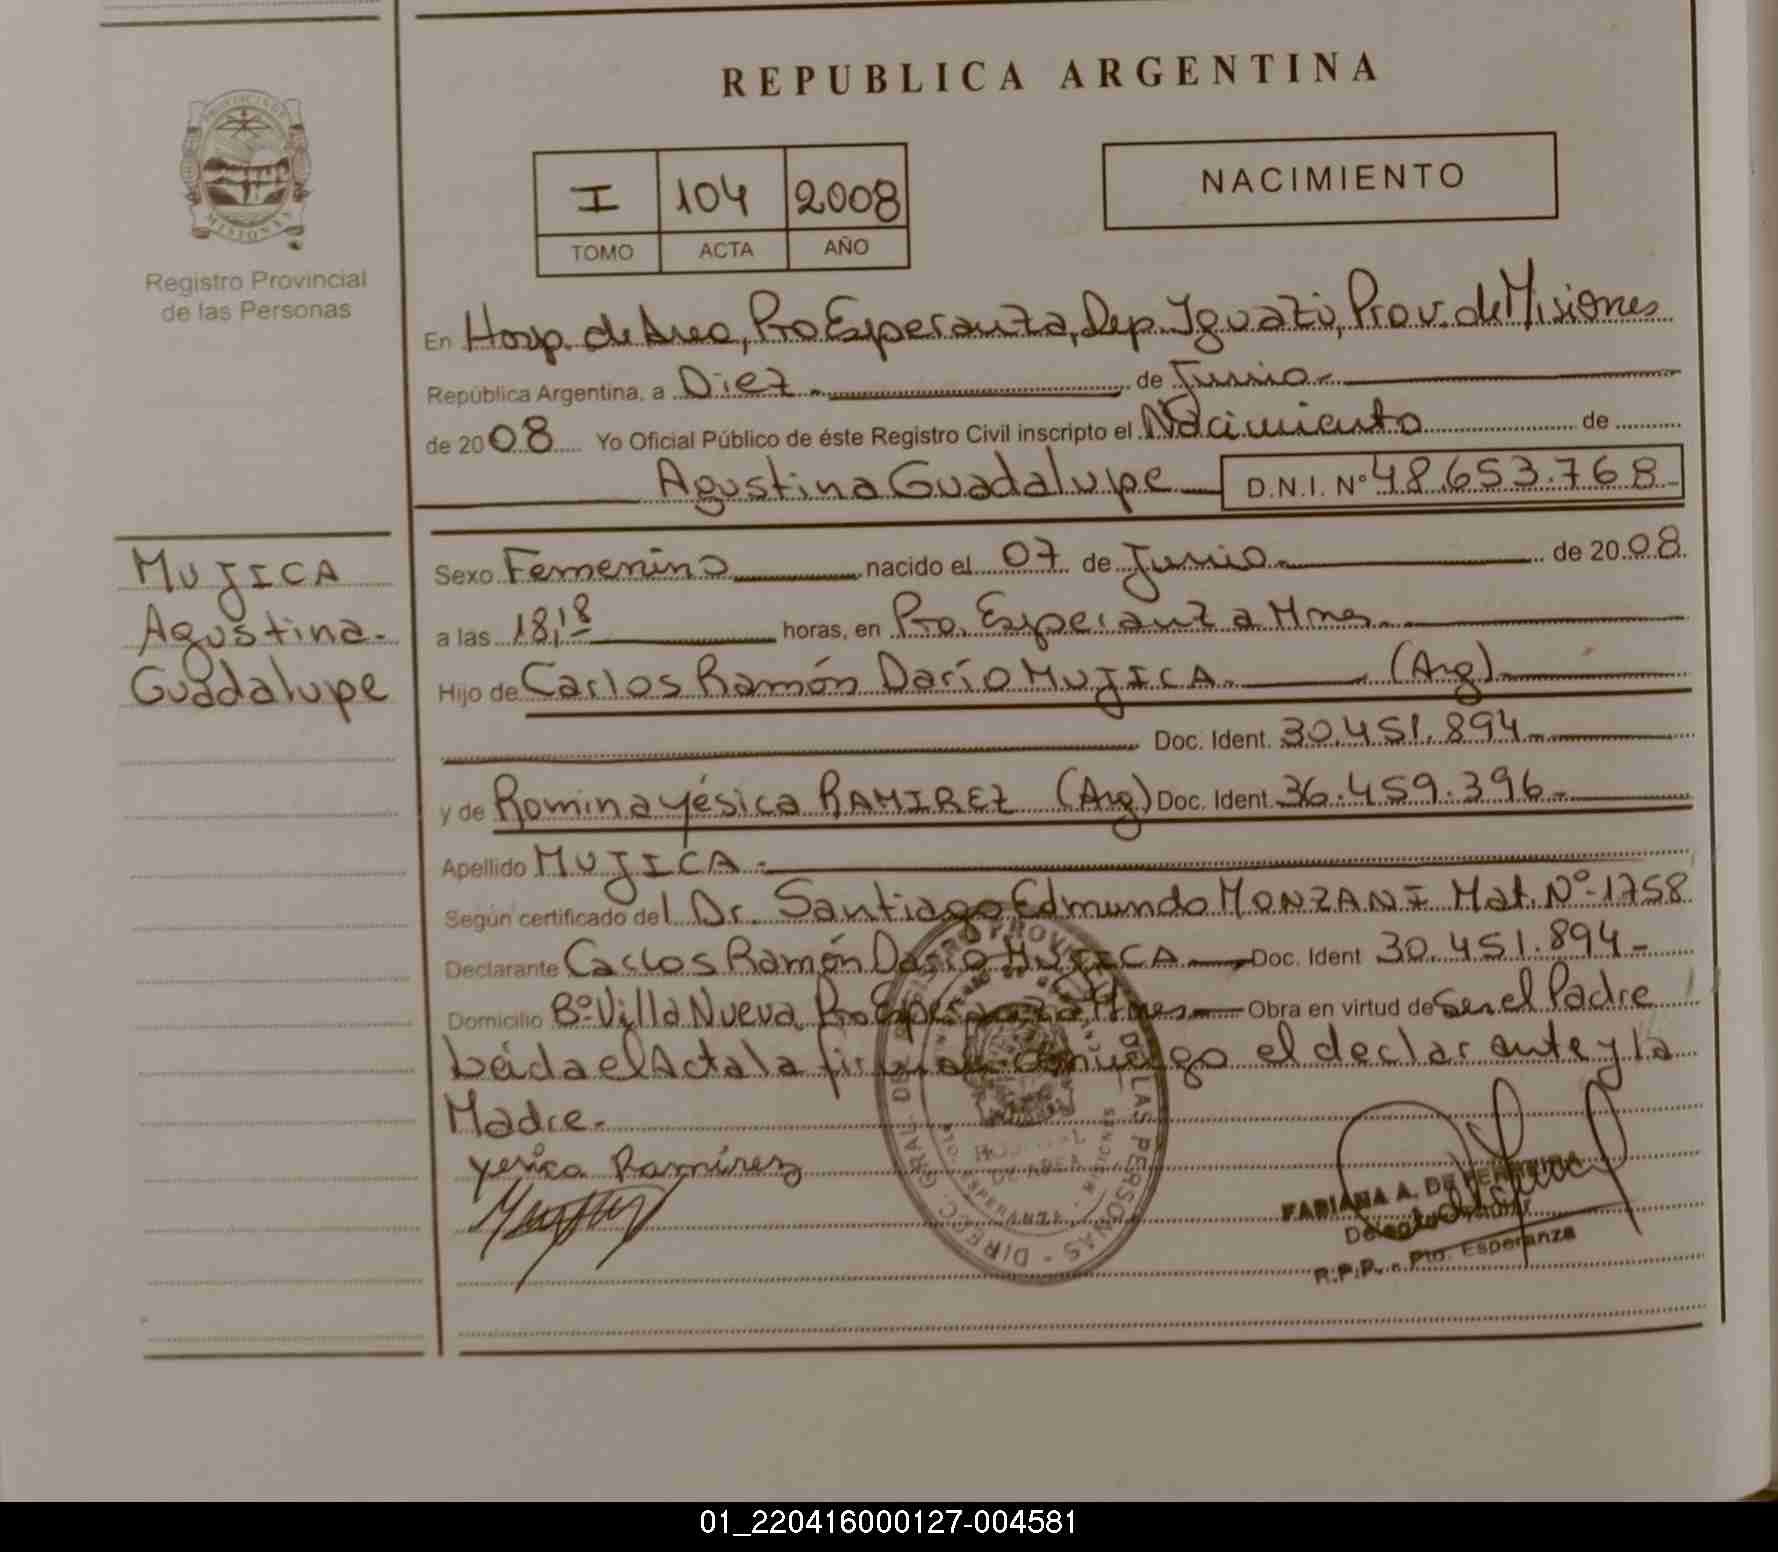 REPUBLICA ARGENTINA
PROVINCIA DE
MISIONES
Registro Provincial
de las Personas
I 104 2008
TOMO ACTA AÑO
NACIMIENTO
En Hosp. de Area, Pto Esperanza, Dep. Iguazú, Prov. de Misiones
República Argentina, a Diez.- de Junio.-
de 2008 Yo Oficial Público de éste Registro Civil inscripto el Nacimiento de
Agustina Guadalupe D.N.I. Nº 48.653.768-
MUJICA
Agustina.
Guadalupe
Sexo Femenino nacido el 07 de Junio.- de 2008
a las 18,18 horas, en Pto. Esperanza Mnes.
Hijo de Carlos Ramón Darío MUJICA. (Arg)
Doc. Ident. 30.451.894-
y de Romina Yésica RAMIREZ (Arg) Doc. Ident. 36.459.396-
Apellido MUJICA.-
Según certificado del Dr. Santiago Edmundo MONZANI Mat. Nº-1758
Declarante Carlos Ramón Darío MUJICA Doc. Ident 30.451.894-
Domicilio Bº Villa Nueva Pto Esperanza, Mnes Obra en virtud de Ser el Padre
Leida el Acta la firman conmigo el declarante y la
Madre.
Yesica Ramirez
DIRECC. GRAL. DEL REGISTRO PROVINCIAL DE LAS PERSONAS
HOSPITAL
DE AREA
PTO. ESPERANZA - MISIONES
FABIANA A. DE FERREIRA
R.P.P. - Pto. Esperanza
01_220416000127-004581